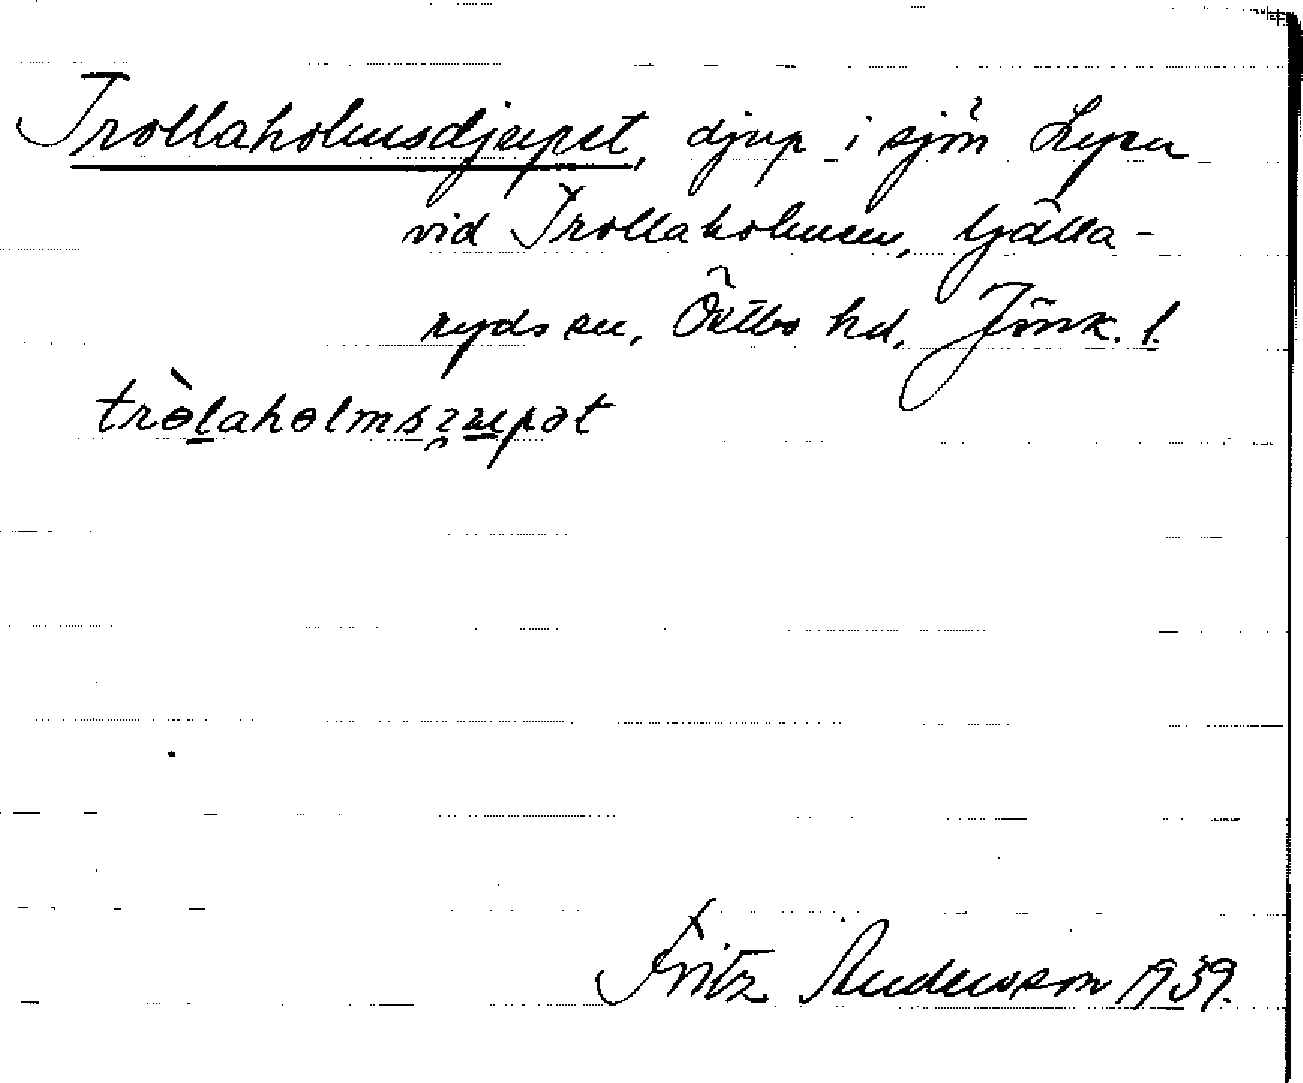 Trollaholmsdjupet, djup i sjön Lyen
vid Trollaholmen, Gälla-
ryds sn, Östbo hd, Jönk. l.
Fritz Andersson 1939.